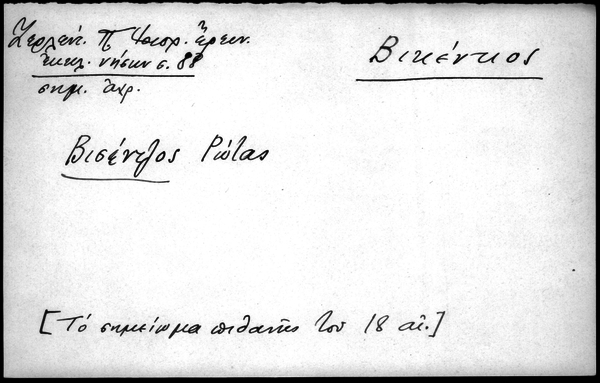 Ζερλέντ. Π. Ἱστορ. Ἔρευν.
ἐκκλ. νήσων σ. 88
σημ. ἀχρ.
Βικέντιος
Βισέντζος Ρώτας
[Τό σημείωμα πιθανῶς τοῦ 18 αἰ.]